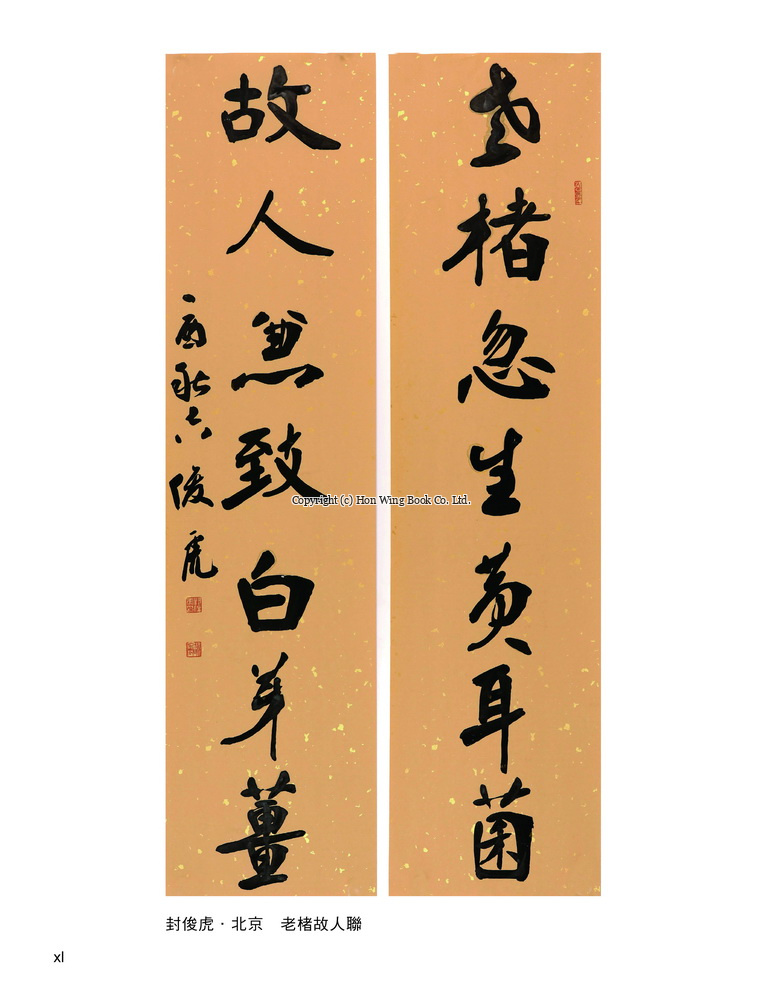 老楮忽生黃耳菌
故人兼致白芽薑
酉秋 俊虎
Copyright (c) Hon Wing Book Co. Ltd.
封俊虎·北京 老楮故人聯
xl